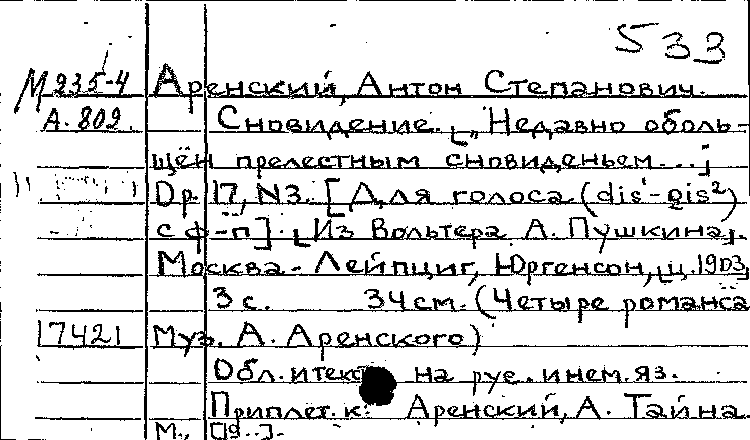 533
М 235-4 Аренский, Антон Степанович.
А. 802. Сновидение. [„Недавно оболь-
щён прелестным сновиденьем...]
Ор. 17, N3. [Для голоса (dis¹-gis²)
с ф-п]. [Из Вольтера А. Пушкина].
Москва - Лейпциг, Юргенсон, [ц. 1903]
3 с. 34 см. (Четыре романса
17421 Муз. А. Аренского)
Обл. и текст на рус. и нем. яз.
Приплет. к: Аренский, А. Тайна.
М., [19..].